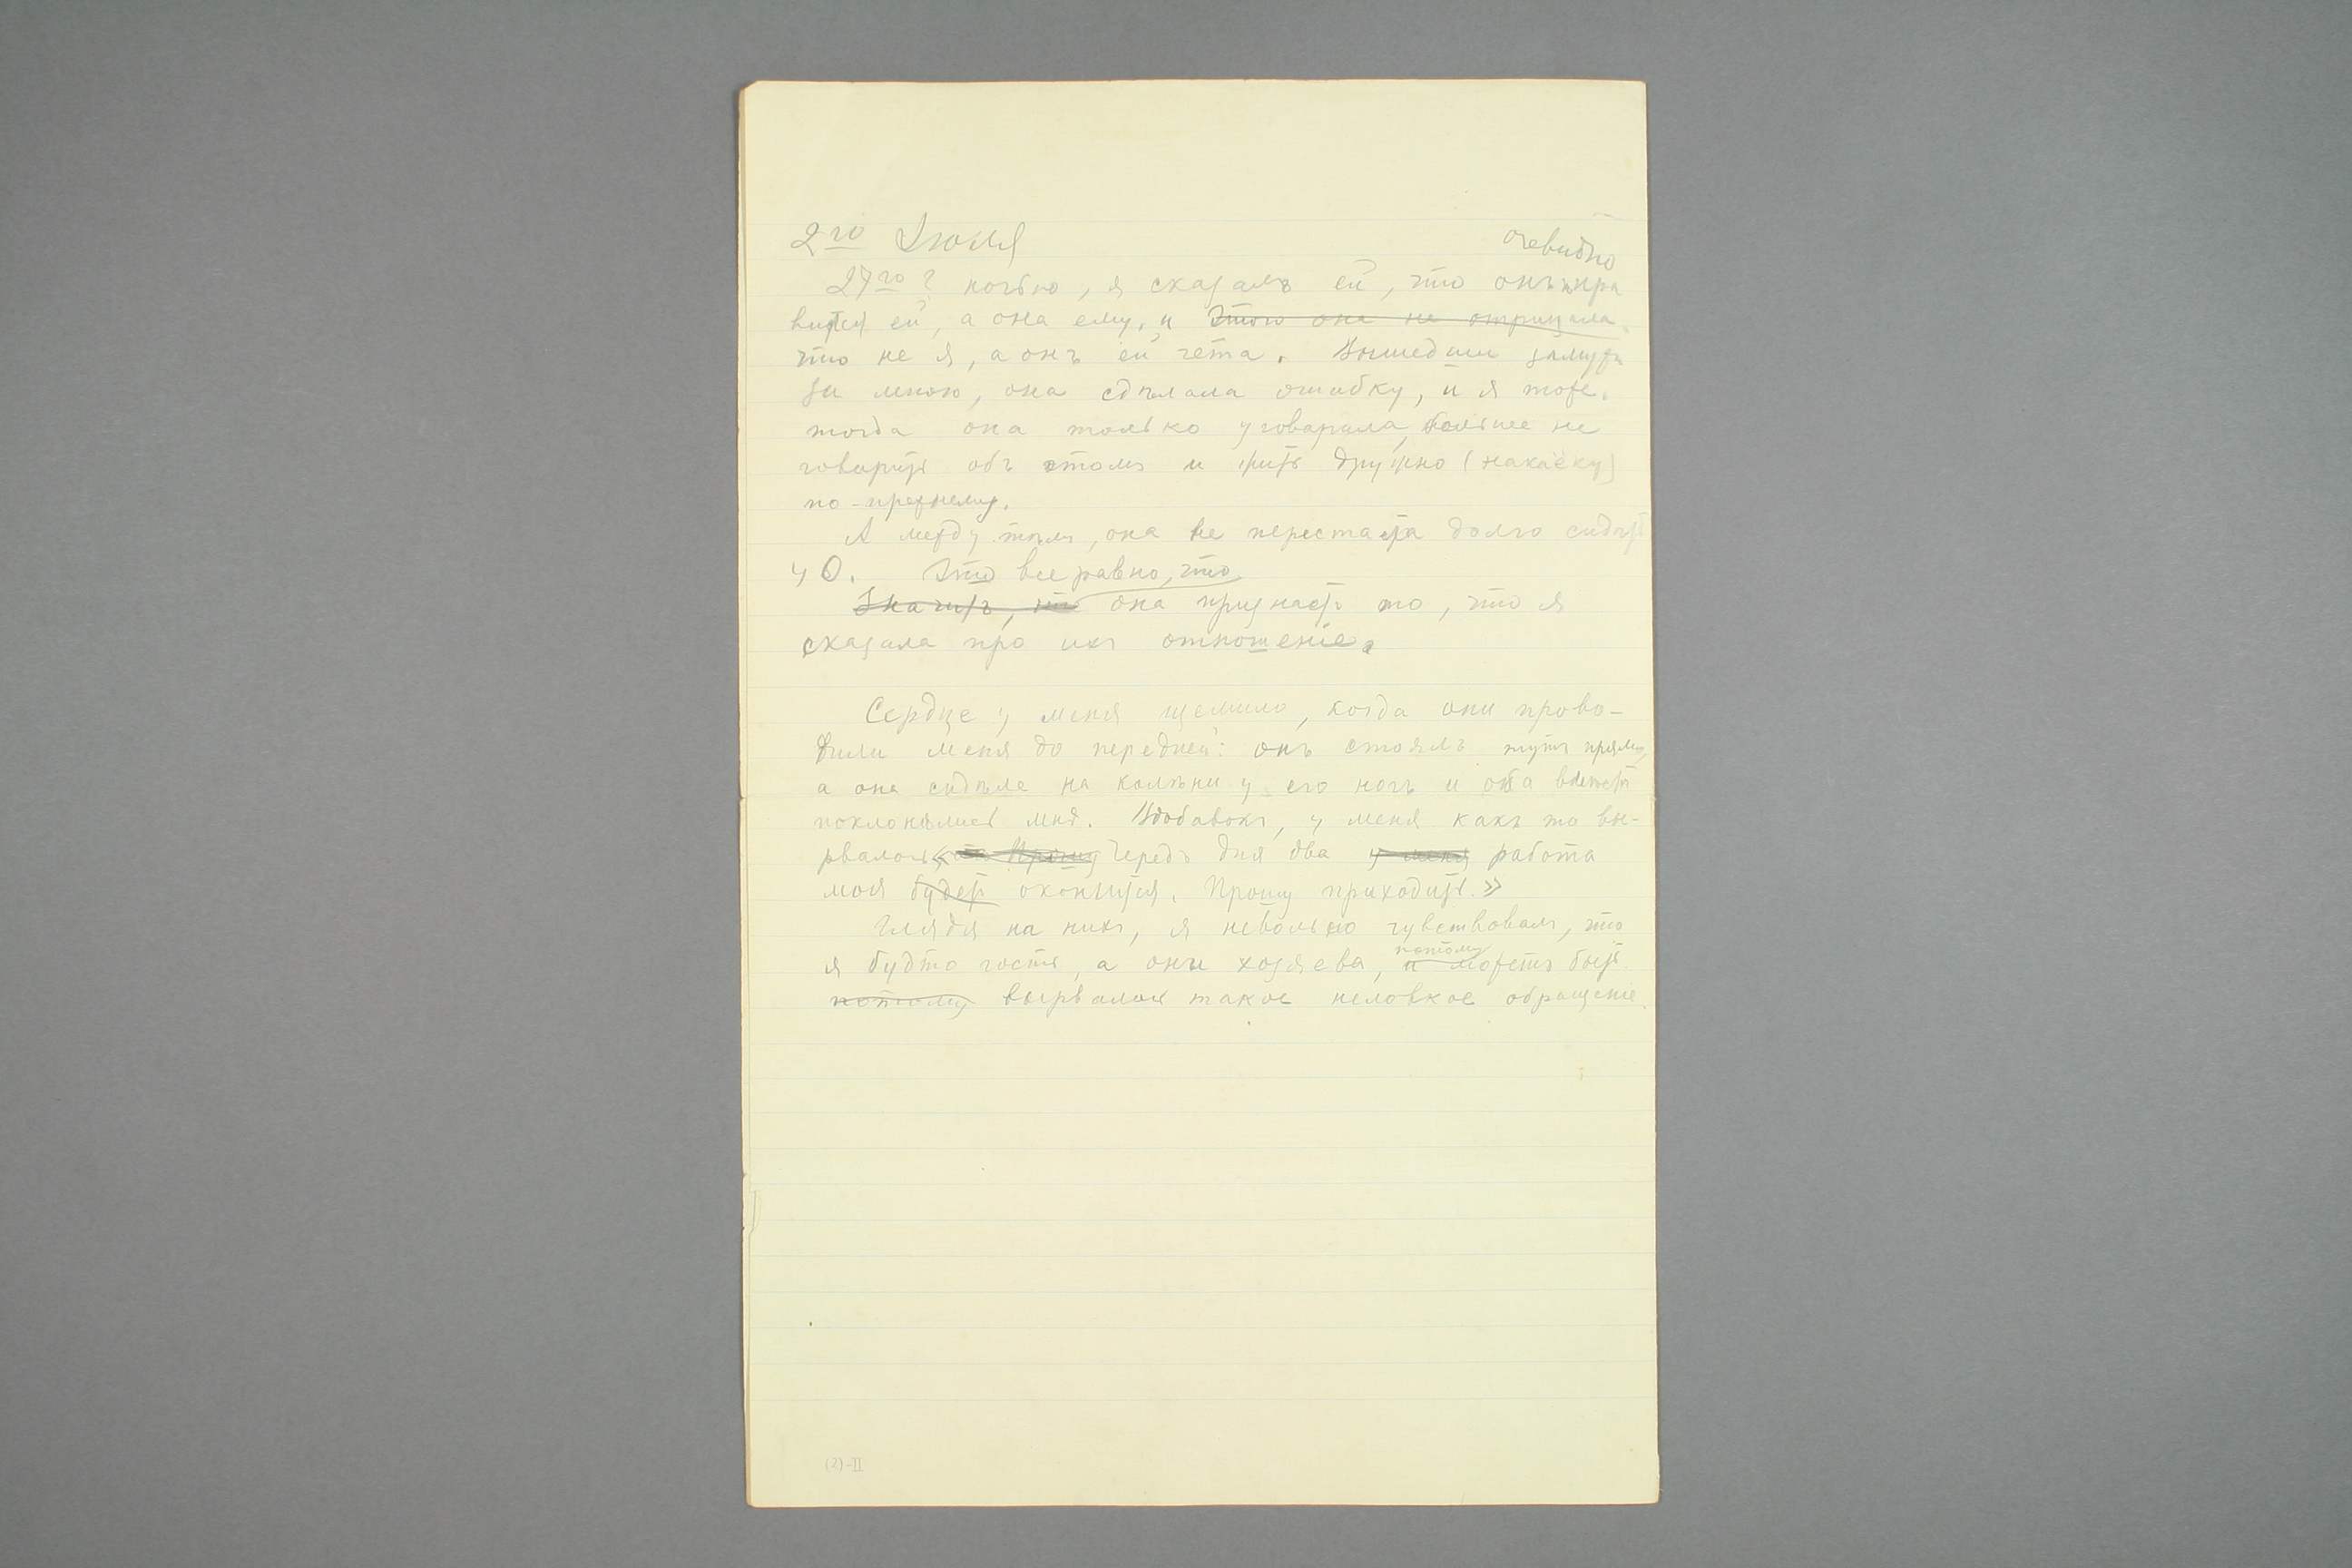 2го Іюля
очевидно
27го? ночью, я сказалъ ей, что онъ нра
вится ей, а она ему, и Этого она не отрицала.
что не я, а онъ ей чета. Вышедши замужъ
за мною, она сдѣлала ошибку, и я тоже.
тогда она только уговарила, больше не
говорить объ этомъ и жить дружно (накаёку)
по-прежнему.
А между тѣмъ, она не перестаетъ долго сидѣть
у О. Это все равно, что
Значитъ, что она признаетъ то, что я
сказала про ихъ отношеніе.
Сердце у меня щемило, когда они прово-
дили меня до передней: онъ стоялъ тутъ прямо,
а она сидѣла на колѣни у его ногъ и оба вместѣ
поклонились мнѣ. Вдобавокъ, у меня какъ то вы-
рвалось « Прошу Черезъ дня два у меня работа
моя будетъ окончится. Прошу приходить.»
Глядя на нихъ, я невольно чувствовалъ, что
потому
я будто гость, а они хозяева, и можетъ быть
потому вырвалось такое неловкое обращеніе.
(2)-II